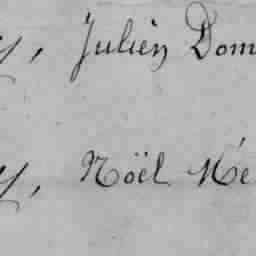 y, Julien Dom
y, Noël Né